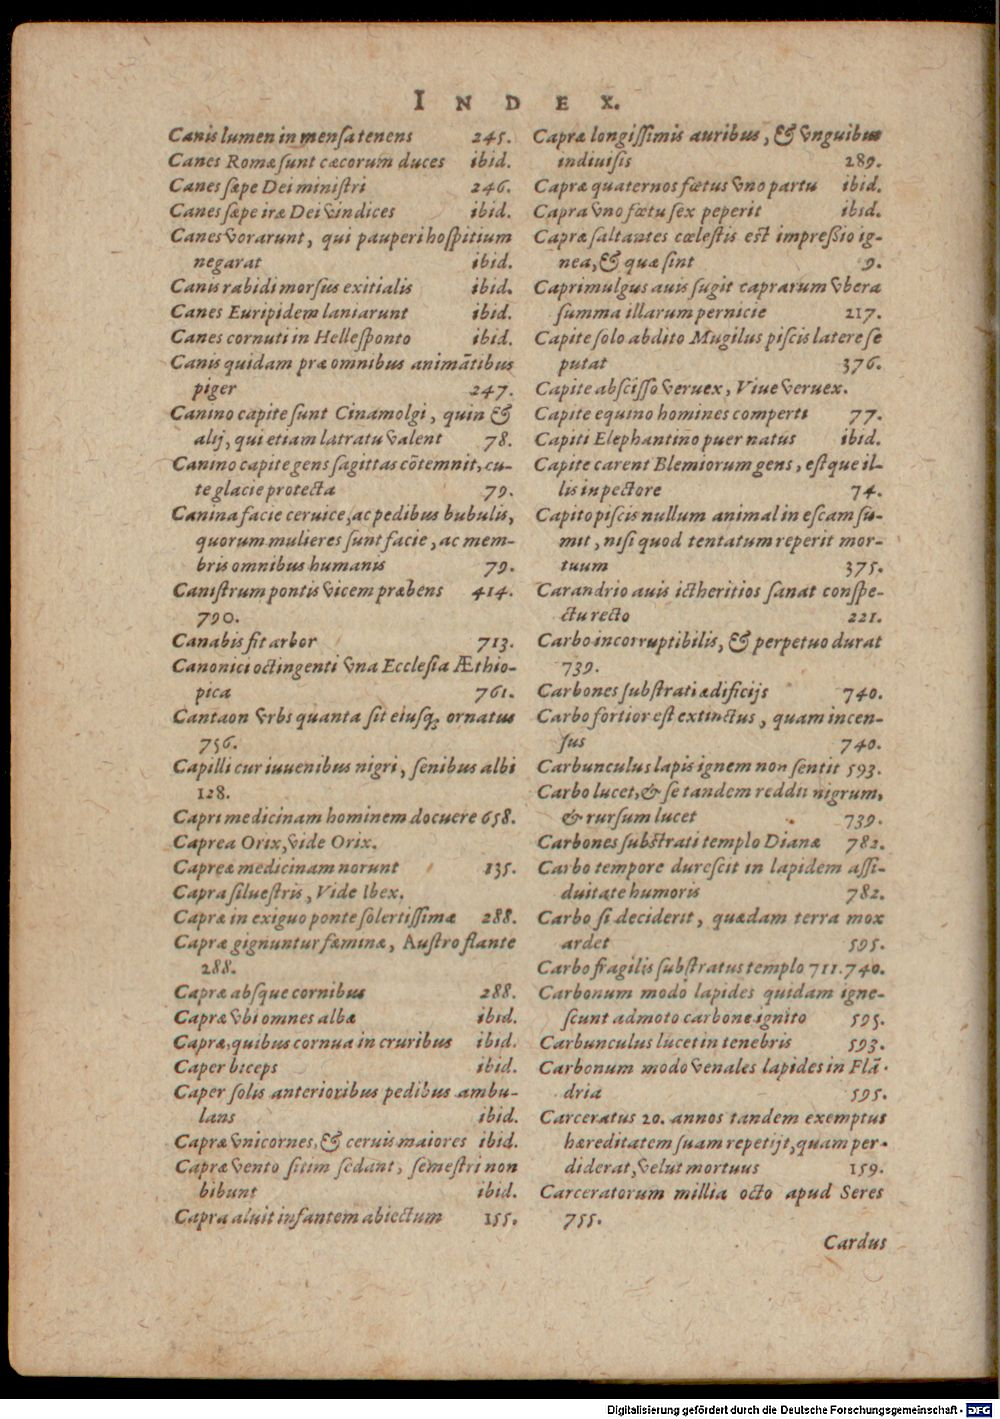 INDEX.
Canis lumen in menſa tenens 245.
Canes Romæ ſunt cæcorum duces ibid.
Canes ſæpe Dei miniſtri 246.
Canes ſæpe iræ Dei vindices ibid.
Canes vorarunt, qui pauperi hoſpitium
negarat ibid.
Canis rabidi morſus exitialis ibid.
Canes Euripidem laniarunt ibid.
Canes cornuti in Helleſponto ibid.
Canis quidam præ omnibus animātibus
piger 247.
Canino capite ſunt Cinamolgi, quin &
alij, qui etiam latratu valent 78.
Canino capite gens ſagittas cōtemnit, cu-
te glacie protecta 79.
Canina facie ceruice, ac pedibus bubulis,
quorum mulieres ſunt facie, ac mem-
bris omnibus humanis 79.
Caniſtrum pontis vicem præbens 414.
790.
Canabis fit arbor 713.
Canonici octingenti vna Eccleſia Æthio-
pica 761.
Cantaon vrbs quanta ſit eiuſq; ornatus
756.
Capilli cur iuuenibus nigri, ſenibus albi
128.
Capri medicinam hominem docuere 658.
Caprea Orix, vide Orix.
Capreæ medicinam norunt 135.
Capra ſilueſtris, Vide Ibex.
Capræ in exiguo ponte ſolertiſſimæ 288.
Capræ gignuntur fæminæ, Auſtro flante
288.
Capræ abſque cornibus 288.
Capræ vbi omnes albæ ibid.
Capræ, quibus cornua in cruribus ibid.
Caper biceps ibid.
Caper ſolis anterioribus pedibus ambu-
lans ibid.
Capræ vnicornes, & ceruis maiores ibid.
Capræ vento ſitim ſedant, ſemeſtri non
bibunt ibid.
Capra aluit infantem abiectum 155.
Capræ longiſſimis auribus, & vnguibus
indiuiſis 289.
Capræ quaternos fœtus vno partu ibid.
Capra vno fœtu ſex peperit ibid.
Capræ ſaltantes cœleſtis eſt impreſſio ig-
nea, & quæ ſint 9.
Caprimulgus auis ſugit caprarum vbera
ſumma illarum pernicie 217.
Capite ſolo abdito Mugilus piſcis latere ſe
putat 376.
Capite abſciſſo veruex, Viue veruex.
Capite equino homines comperti 77.
Capiti Elephantino puer natus ibid.
Capite carent Blemiorum gens, eſtque il-
lis in pectore 74.
Capito piſcis nullum animal in eſcam ſu-
mit, niſi quod tentatum reperit mor-
tuum 375.
Carandrio auis ictheritios ſanat conſpe-
ctu recto 221.
Carbo incorruptibilis, & perpetuo durat
739.
Carbones ſubſtrati ædificijs 740.
Carbo fortior eſt extinctus, quam incen-
ſus 740.
Carbunculus lapis ignem non ſentit 593.
Carbo lucet, & ſe tandem reddit nigrum,
& rurſum lucet 739.
Carbones ſubſtrati templo Dianæ 782.
Carbo tempore dureſcit in lapidem aſſi-
duitate humoris 782.
Carbo ſi deciderit, quædam terra mox
ardet 595.
Carbo fragilis ſubſtratus templo 711. 740.
Carbonum modo lapides quidam igne-
ſcunt admoto carbone ignito 595.
Carbunculus lucet in tenebris 593.
Carbonum modo venales lapides in Flā-
dria 595.
Carceratus 20. annos tandem exemptus
hæreditatem ſuam repetijt, quam per-
diderat, velut mortuus 159.
Carceratorum millia octo apud Seres
755.
Cardus
Digitalisierung gefördert durch die Deutsche Forschungsgemeinschaft - DFG